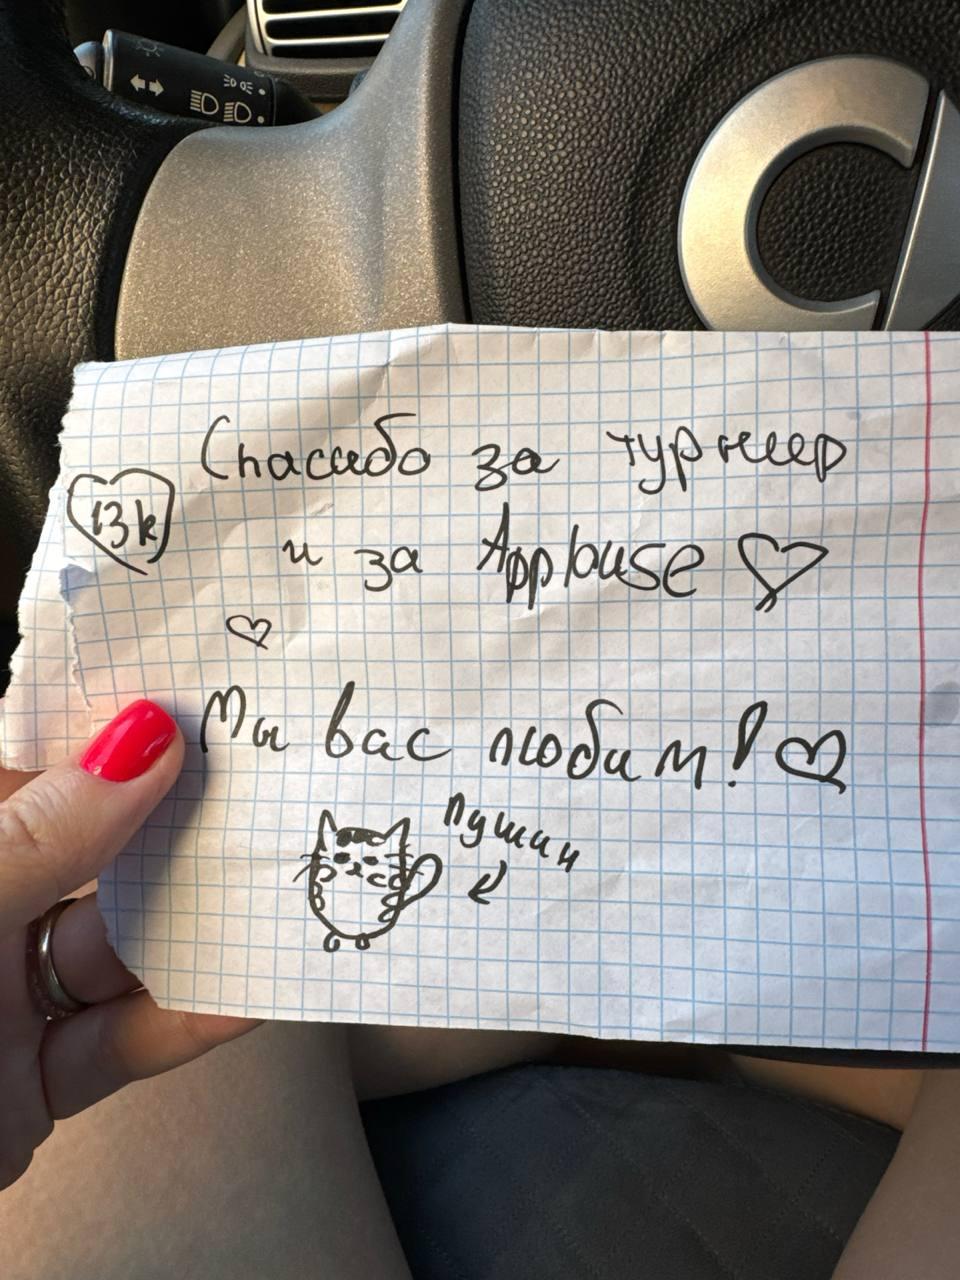 Спасибо за турнир
13k
и за Applause
Мы вас любим!
Пушин